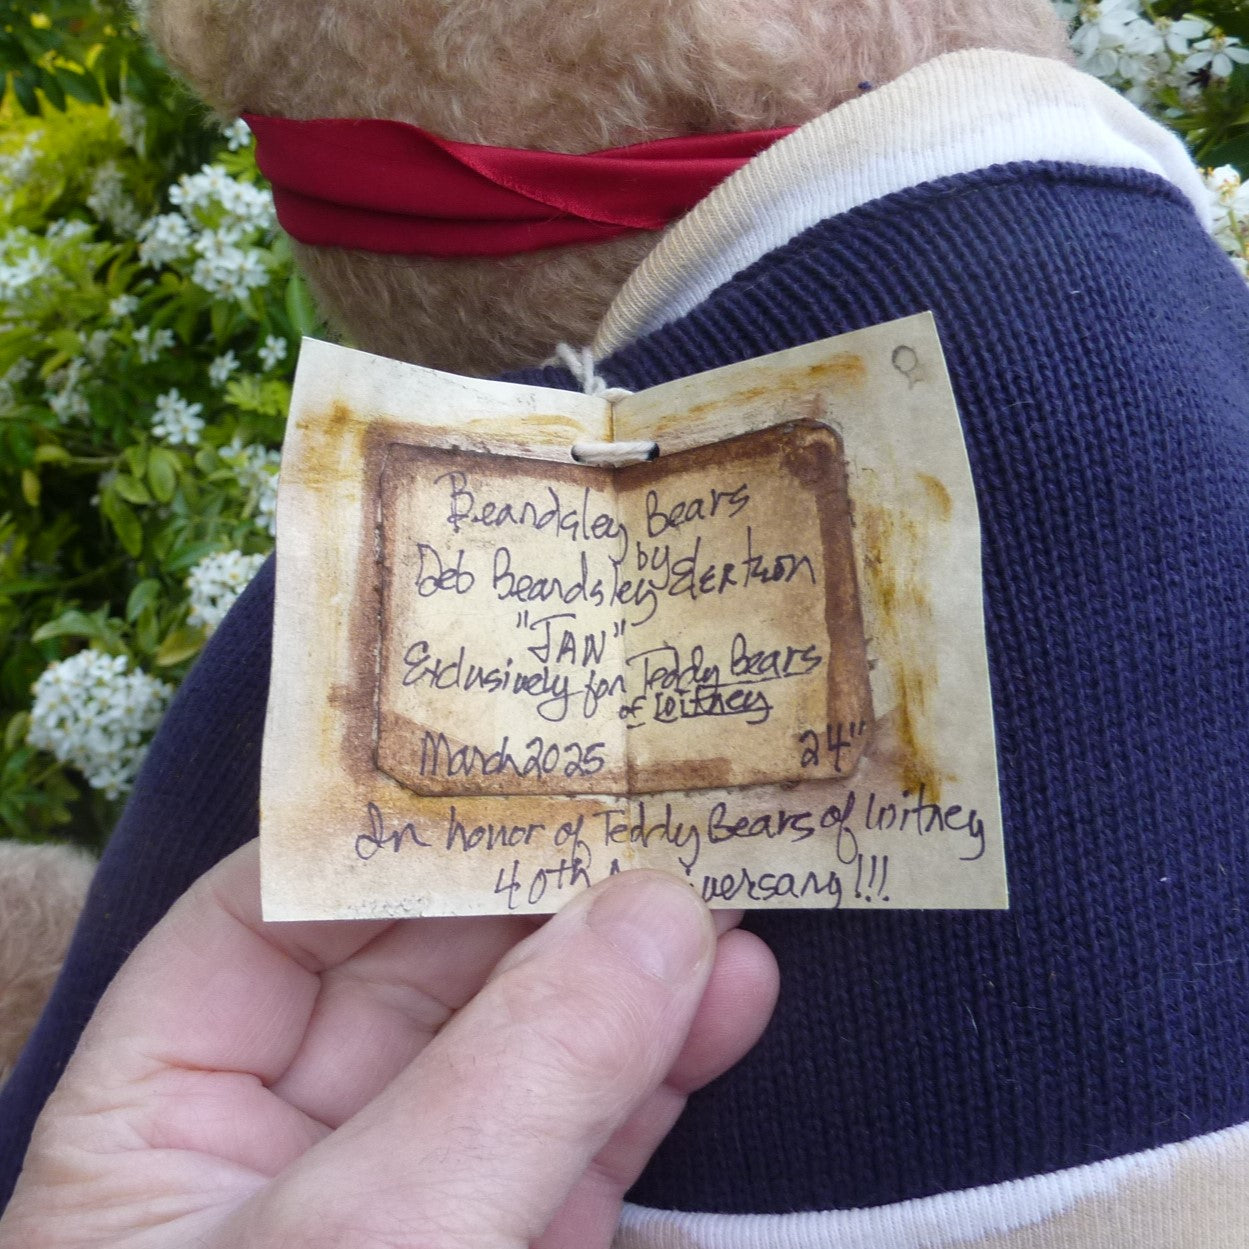 Beardsley Bears
by
Deb Beardsley Evertson
"JAN"
Exclusively for Teddy Bears
of Witney
March 2025 24"
In honor of Teddy Bears of Witney
40th